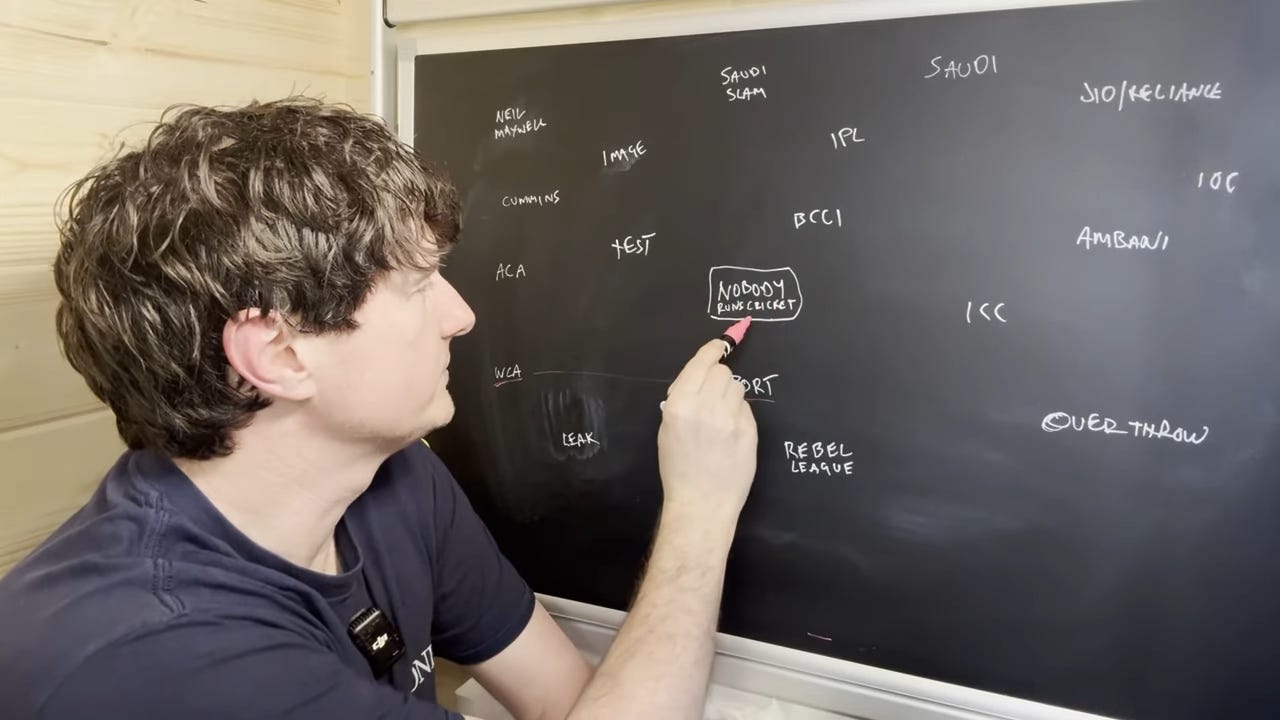 SAUDI
SLAM
SAUDI
JIO/RELIANCE
NEIL
MAXWELL
IMAGE
IPL
IOC
CUMMINS
BCCI
TEST
AMBANI
ACA
NOBODY
RUNS CRICKET
ICC
WCA
ORT
LEAK
OVERTHROW
REBEL
LEAGUE
dji